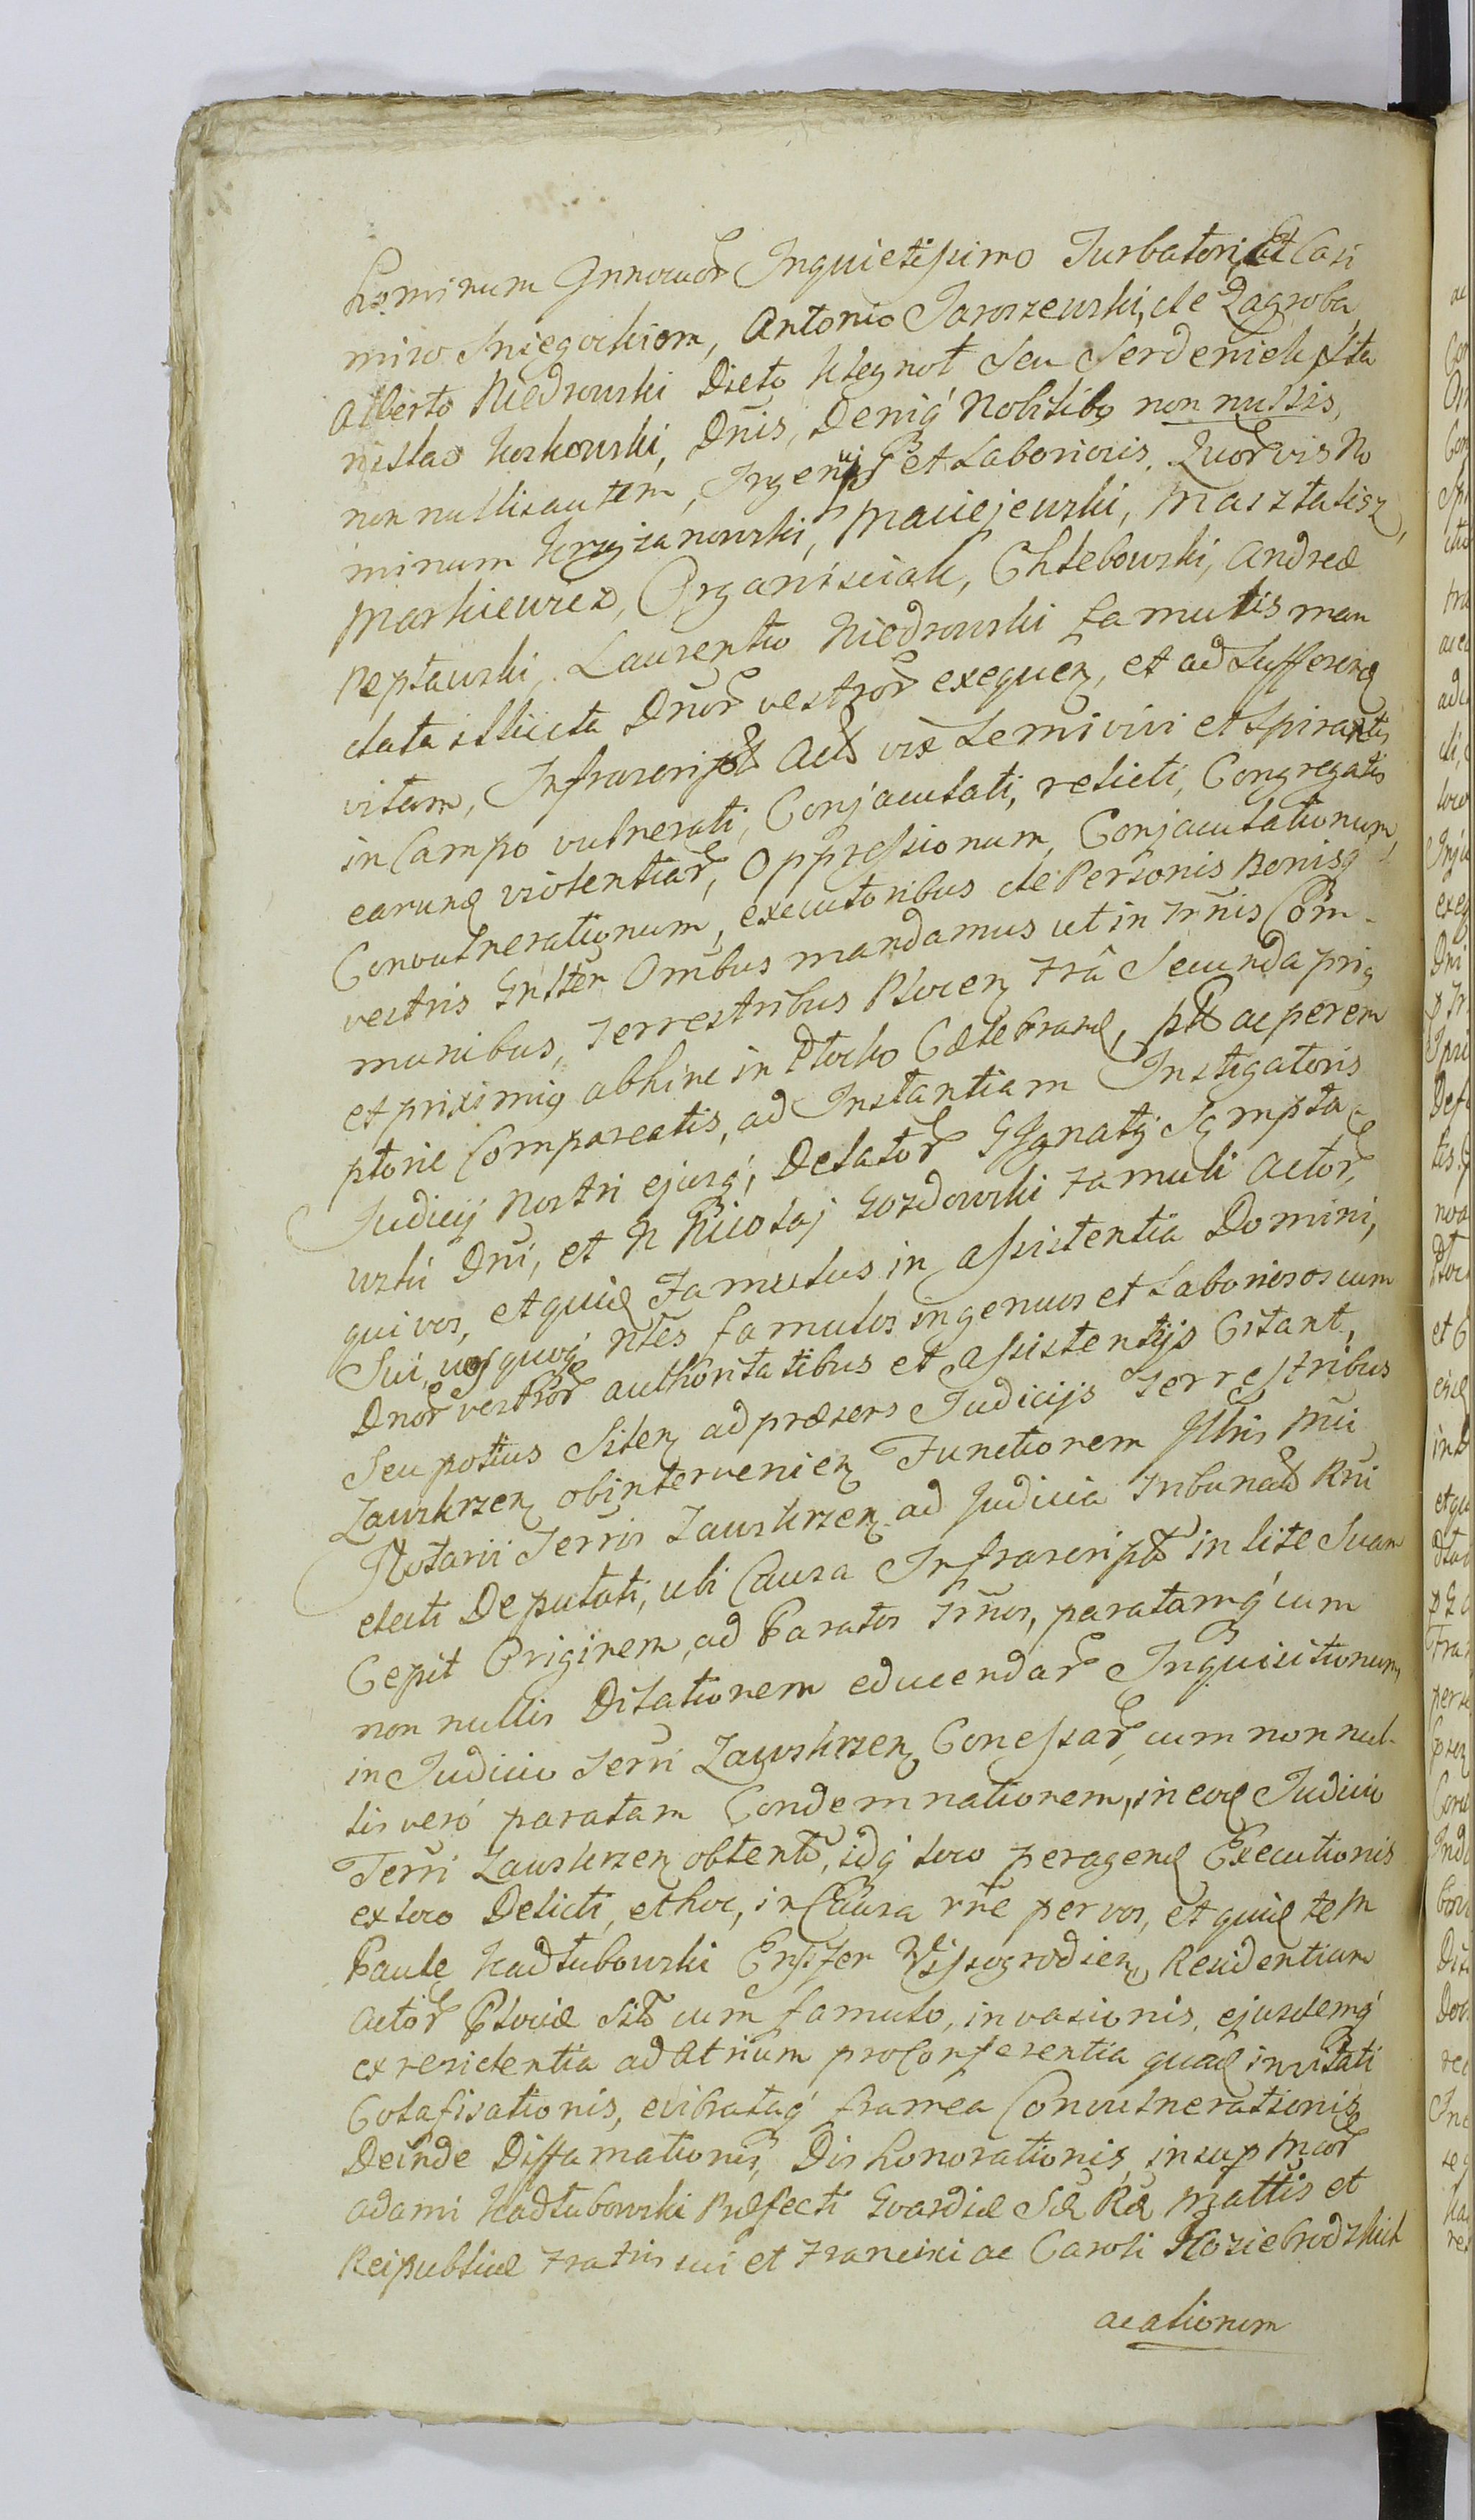 hominum Innocuor Inquietissimo Turbatori, Et Casi
miro Sniegockiem, Antonio Jaroszewski, de Zagroba
Alberto Niedrowski Dicto Klegnot seu Serdeniek Sta
nislao Koskowski, Dnis, Deniq Nobilibg non nullis,
non nullis autem, Ingenuis et Laboriosis, Quorvis No
minum Krzyzanowski, Maciejewski, Masztalisz,
Markiewicz, Organisciak, Chlebowski, Andreæ
Peptawski, Laurentio Niedrowski famulis man
data illicita Dnor vestror exequen, et ad sufferend
vitam, Infrascript Act vix Semivivi et Spirantis
in Campo vulnerati, Conjaculati, relicti, Congregatis
earund violentiar, Oppressionum, Conjaculationum
Convulnerationum, executoribus de Personis Bonisq
vestris Gnlter Omibus mandamus ut in Trnis Com-
munibus, Terrestribus Plocen Fra Secunda prig
et priximig abhinc in Plocko Celebrand, ptt ac perem
ptorie Compareatis, ad Instantiam Instigatoris
Judicij Nostri ejusq, Delator G Ignatij Sempła
wski Dni, et N Nicolaj Gozdowski Famuli Actor,
qui vos, et quid Famulus in assistentia Domini,
Sui, vos quoq ntes famulos ingenuos et Laboriosos cum
Dnor vestror authoritatibus et assistentijs Citant,
Seu potius Siten ad præsens Judicijs Terrestribus
Zawskrzen ob intervenien Functionem Illris Mci
Notarii Terris Zawskrzen ad Judicia Tribunal Rni
electi Deputati, ubi Causa Infrascript in lite Suam
Cepit Originem, ad Paratos Trnos, paratamq cum
non nullis Dilationem educendar Inquisitionum
in Judicio Terri Zawskrzen Concessar, cum non nul-
lis vero paratam Condemnationem, in eod Judicio
Terri Zawskrzen obtent, idq loco peragend Executionis
ex loco Delicti, et hoc, in Causa rne per vos, et quid te M
Paule Kadłubowski Ensifer Wyssogrodien, Residentiam
Actor Plociæ Sit cum famulo, invasionis, ejusdemq
ex residentia ad Atrium pro Conferentia quad invitati
Colafisationis, evibrataq framea Convulnerationis
Deinde Diffamationis, Dishonorationis, insup Mcor
Adami Kadłubowski Præfecti Gvardiæ Sæ Ræ Mattis et
Reipublicæ Fratris sui et Francisci ac Caroli Koziebrodzkich
acationem